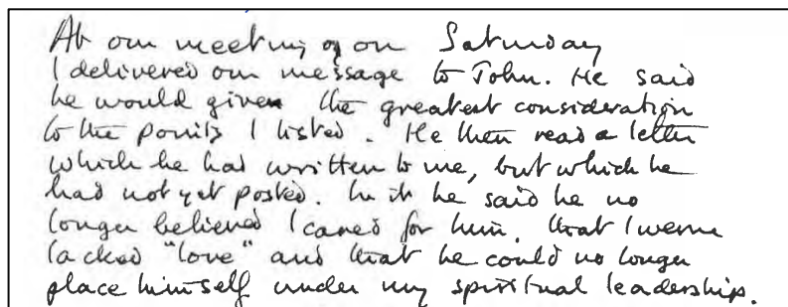 At our meeting on Saturday
I delivered our message to John. He said
he would given the greatest consideration
to the points I listed. He then read a letter
which he had written to me, but which he
had not yet posted. In it he said he no
longer believed I cared for him, that I
lacked "love" and that he could no longer
place himself under my spiritual leadership.